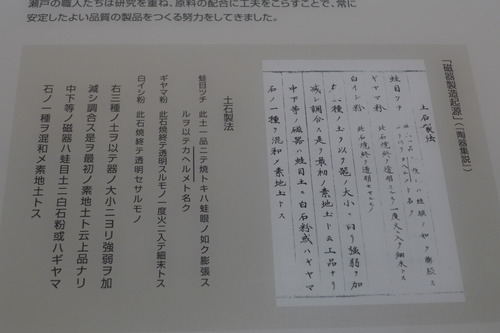 瀬戸の職人たちは研究を重ね、原料の配合に工夫をこらすことで、常に
安定したよい品質の製品をつくる努力をしてきました。
「磁器製造起源」（「陶器集説」）
土石製法
蛙目ツチ
ギヤマ粉 此石焼終テ透明スルモノ一度火ニ入テ細末トス
白イシ粉 此石焼終テ透明セサルモノ
減シ調合ス是ヲ最初ノ素地土ト云上品ナリ
中下等ノ磁器ハ蛙目土ニ白石粉或ハギヤマ
石ノ一種ヲ混和メ素地土トス
土石製法
蛙目ツチ 此土一品ニテ焼トキハ蛙眼ノ如ク膨張ス
ルヲ以テカヘルメト名ク
ギヤマ粉 此石焼終テ透明スルモノ一度火ニ入テ細末トス
白イシ粉 此石焼終テ透明セサルモノ
右三種ノ土ヲ以テ器ノ大小ニヨリ強弱ヲ加
減シ調合ス是ヲ最初ノ素地土ト云上品ナリ
中下等ノ磁器ハ蛙目土ニ白石粉或ハギヤマ
石ノ一種ヲ混和メ素地土トス